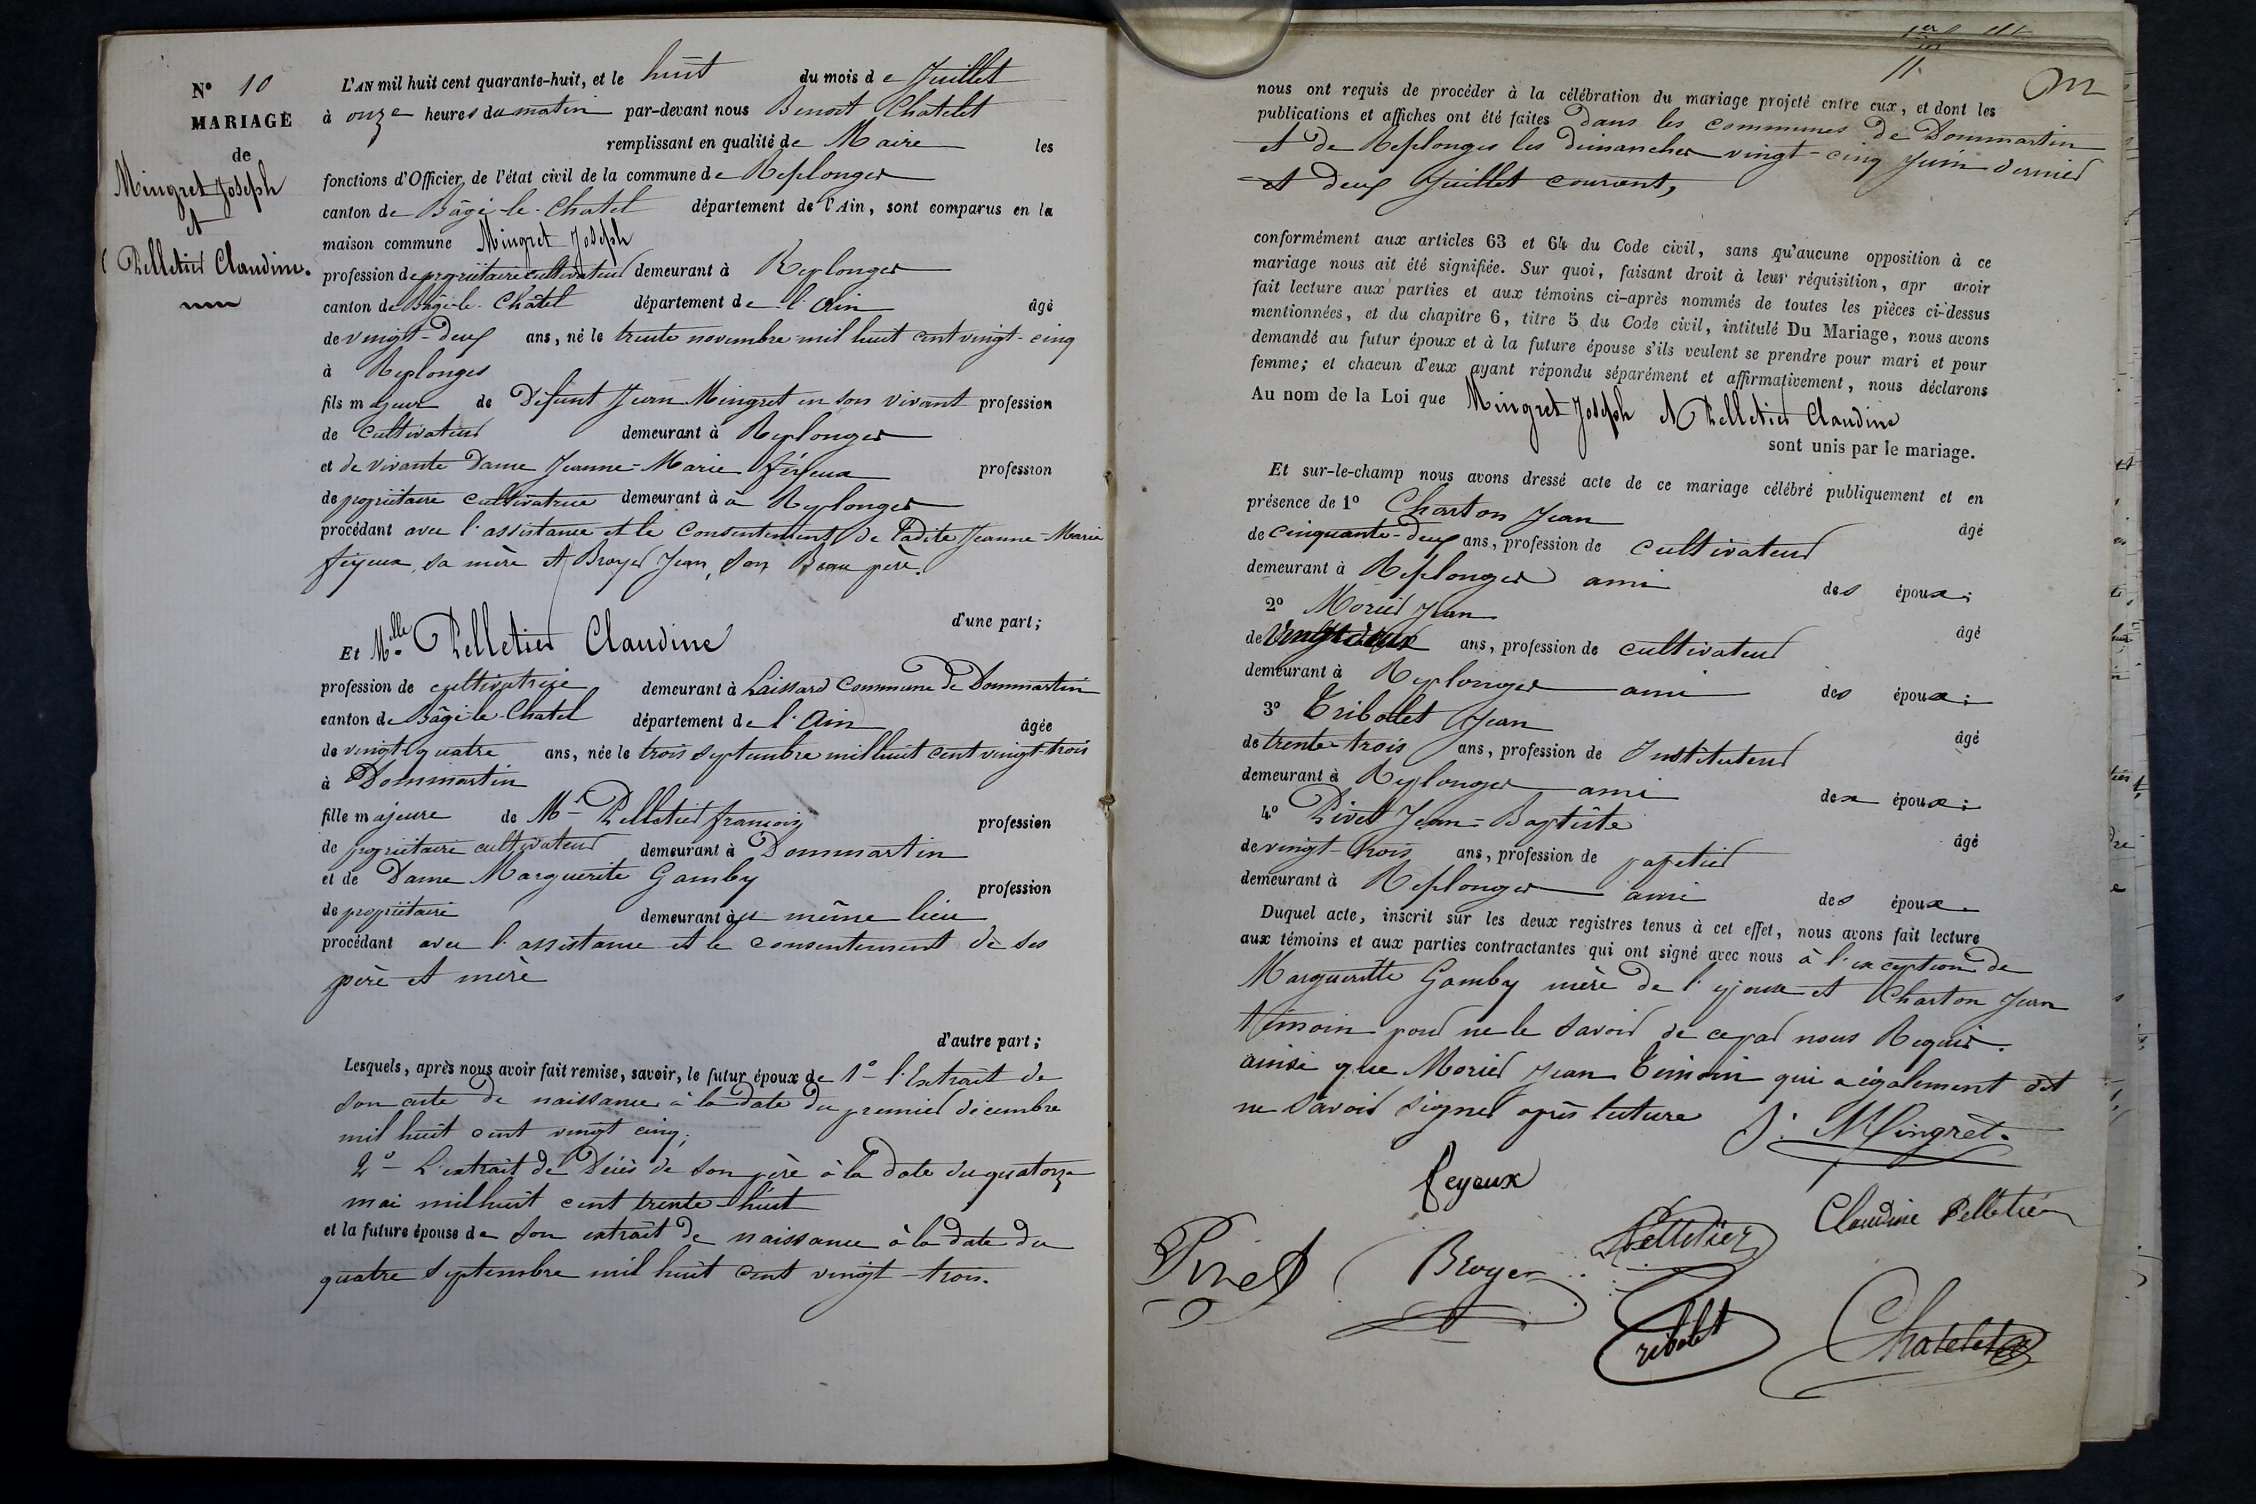 N° 10
MARIAGE
de
Mingret Joseph
et
Pelletier Claudine.
L'AN mil huit cent quarante-huit, et le huit du mois de Juillet
à onze heures du matin par-devant nous Benoit Chatelet
remplissant en qualité de Maire les
fonctions d'Officier de l'état civil de la commune de Replonges
canton de Bâgé-le-Chatel département de l'Ain, sont comparus en la
maison commune Mingret Joseph
profession de propriétaire cultivateur demeurant à Replonges
canton de Bâgé-le-Châtel département de l'Ain âgé
de vingt-deux ans, né le trente novembre mil huit cent vingt-cinq
à Replonges
fils majeur de Défunt Jean Mingret en son vivant profession
de cultivateur demeurant à Replonges
et de vivante Dame Jeanne-Marie féyeux profession
de propriétaire cultivatrice demeurant à à Replonges
procédant avec l'assistance et le consentement de ladite Jeanne-Marie
féyeux, sa mère et Broyer Jean, son Beau père.
d'une part;
Et Mlle Pelletier Claudine
profession de cultivatrice demeurant à Laissard Commune de Dommartin
canton de Bâgé-le-Chatel département de l'Ain âgée
de vingt-quatre ans, née le trois septembre mil huit cent vingt-trois
à Dommartin
fille majeure de Mr Pelletier françois profession
de propriétaire cultivateur demeurant à Dommartin
et de Dame Marguerite Gamby profession
de propriétaire demeurant à même lieu
procédant avec l'assistance et le consentement de ses
père et mère
d'autre part;
Lesquels, après nous avoir fait remise, savoir, le futur époux de 1° l'Extrait de
son acte de naissance à la date du premier décembre
mil huit cent vingt cinq;
2° L'extrait de Décès de son père à la date du quatorze
mai mil huit cent trente-huit
et la future épouse de son extrait de naissance à la date du
quatre septembre mil huit cent vingt-trois.
11
nous ont requis de procéder à la célébration du mariage projeté entre eux, et dont les
publications et affiches ont été faites dans les communes de Dommartin
et de Replonges les dimanches vingt-cinq Juin dernier
et deux Juillet courant,
conformément aux articles 63 et 64 du Code civil, sans qu'aucune opposition à ce
mariage nous ait été signifiée. Sur quoi, faisant droit à leur réquisition, apr avoir
fait lecture aux parties et aux témoins ci-après nommés de toutes les pièces ci-dessus
mentionnées, et du chapitre 6, titre 5 du Code civil, intitulé Du Mariage, nous avons
demandé au futur époux et à la future épouse s'ils veulent se prendre pour mari et pour
femme; et chacun d'eux ayant répondu séparément et affirmativement, nous déclarons
Au nom de la Loi que Mingret Joseph et Pelletier Claudine
sont unis par le mariage.
Et sur-le-champ nous avons dressé acte de ce mariage célébré publiquement et en
présence de 1° Charton Jean âgé
de cinquante-deux ans, profession de cultivateur
demeurant à Replonges ami des époux;
2° Morier Jean âgé
de Vingt deux ans, profession de cultivateur
demeurant à Replonges ami des époux;
3° Tribollet Jean âgé
de trente-trois ans, profession de Instituteur
demeurant à Replonges ami des époux;
4° Pivet Jean-Baptiste âgé
de vingt-trois ans, profession de papetier
demeurant à Replonges ami des époux.
Duquel acte, inscrit sur les deux registres tenus à cet effet, nous avons fait lecture
aux témoins et aux parties contractantes qui ont signé avec nous à l'exception de
Marguerite Gamby mère de l'épouse et Charton Jean
témoin pour ne le savoir de ce par nous Requis.
ainsi que Morier Jean Témoin qui a également dit
ne savoir signer après lecture J. Mingret.
feyeux
Claudine Pelletier
Pelletier
Broyer
Pivet
Tribolet
Chatelet